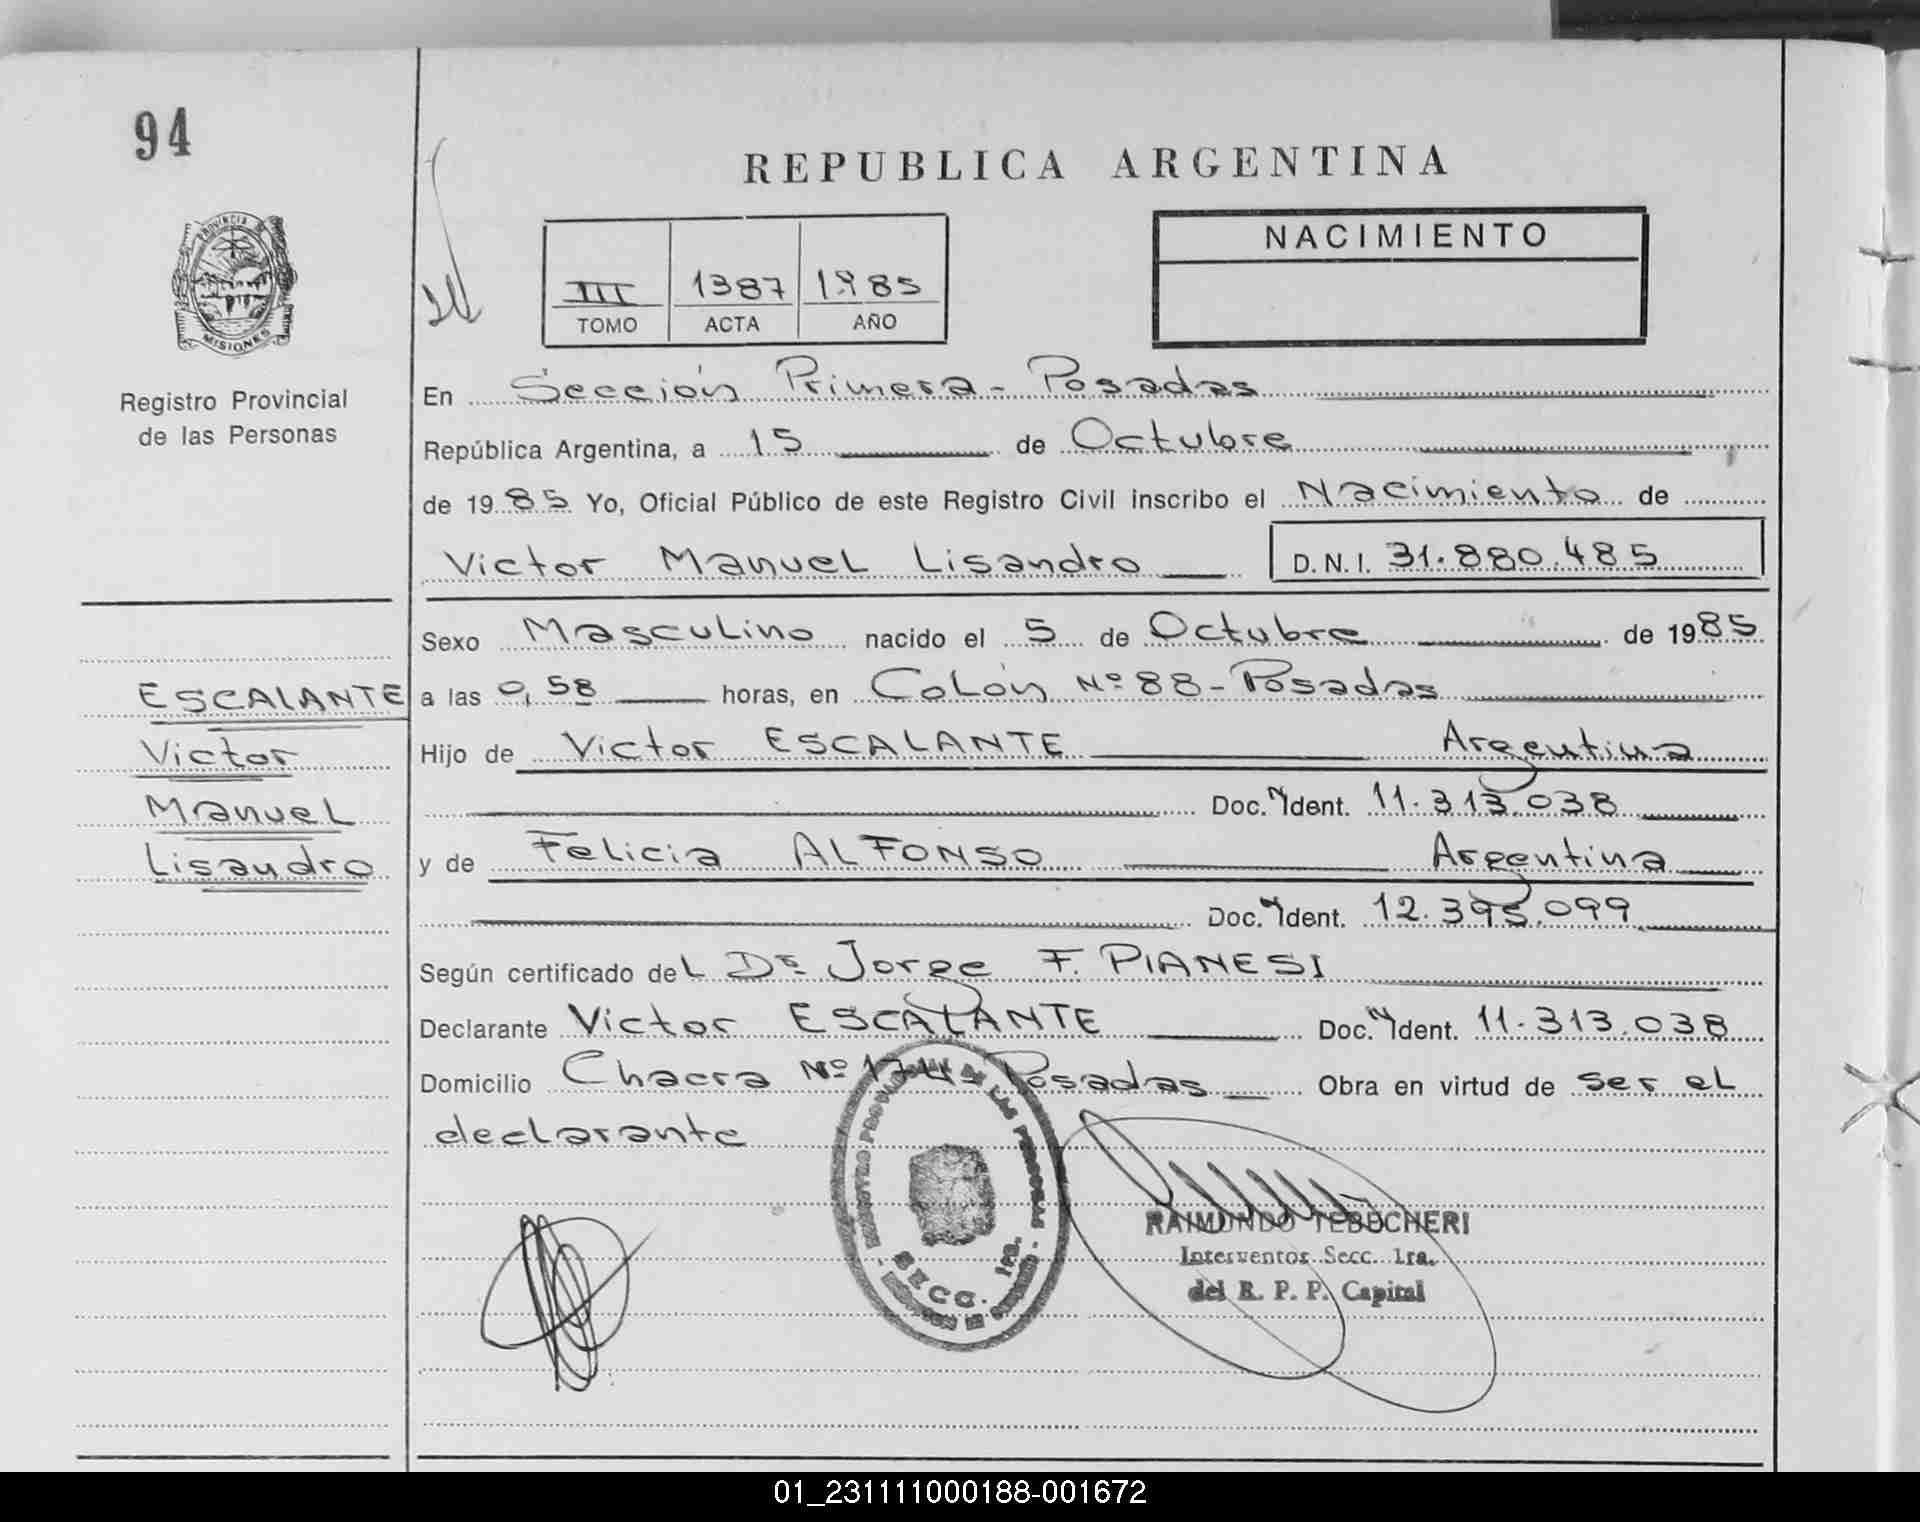 94
REPUBLICA ARGENTINA
PROVINCIA
MISIONES
Registro Provincial
de las Personas
III 1387 1985
TOMO ACTA AÑO
NACIMIENTO
En Sección Primera - Posadas
República Argentina, a 15 de Octubre
de 1985 Yo, Oficial Público de este Registro Civil inscribo el Nacimiento de
Victor Manuel Lisandro D.N.I. 31.880.485
Sexo Masculino nacido el 5 de Octubre de 1985
ESCALANTE
Victor
Manuel
Lisandro
a las 0,58 horas, en Colón Nº 88 - Posadas
Hijo de Victor ESCALANTE Argentina
Doc. N Ident. 11.313.038
y de Felicia ALFONSO Argentina
Doc. N Ident. 12.395.099
Según certificado del Dr Jorge F. PIANESI
Declarante Victor ESCALANTE Doc. N Ident. 11.313.038
Domicilio Chacra Nº Posadas Obra en virtud de ser el
declarante
DE LAS PERSONAS
SECC. 1ra.
RAIMUNDO TEBUCHERI
Interventor Secc. 1ra.
del R. P. P. Capital
01_231111000188-001672